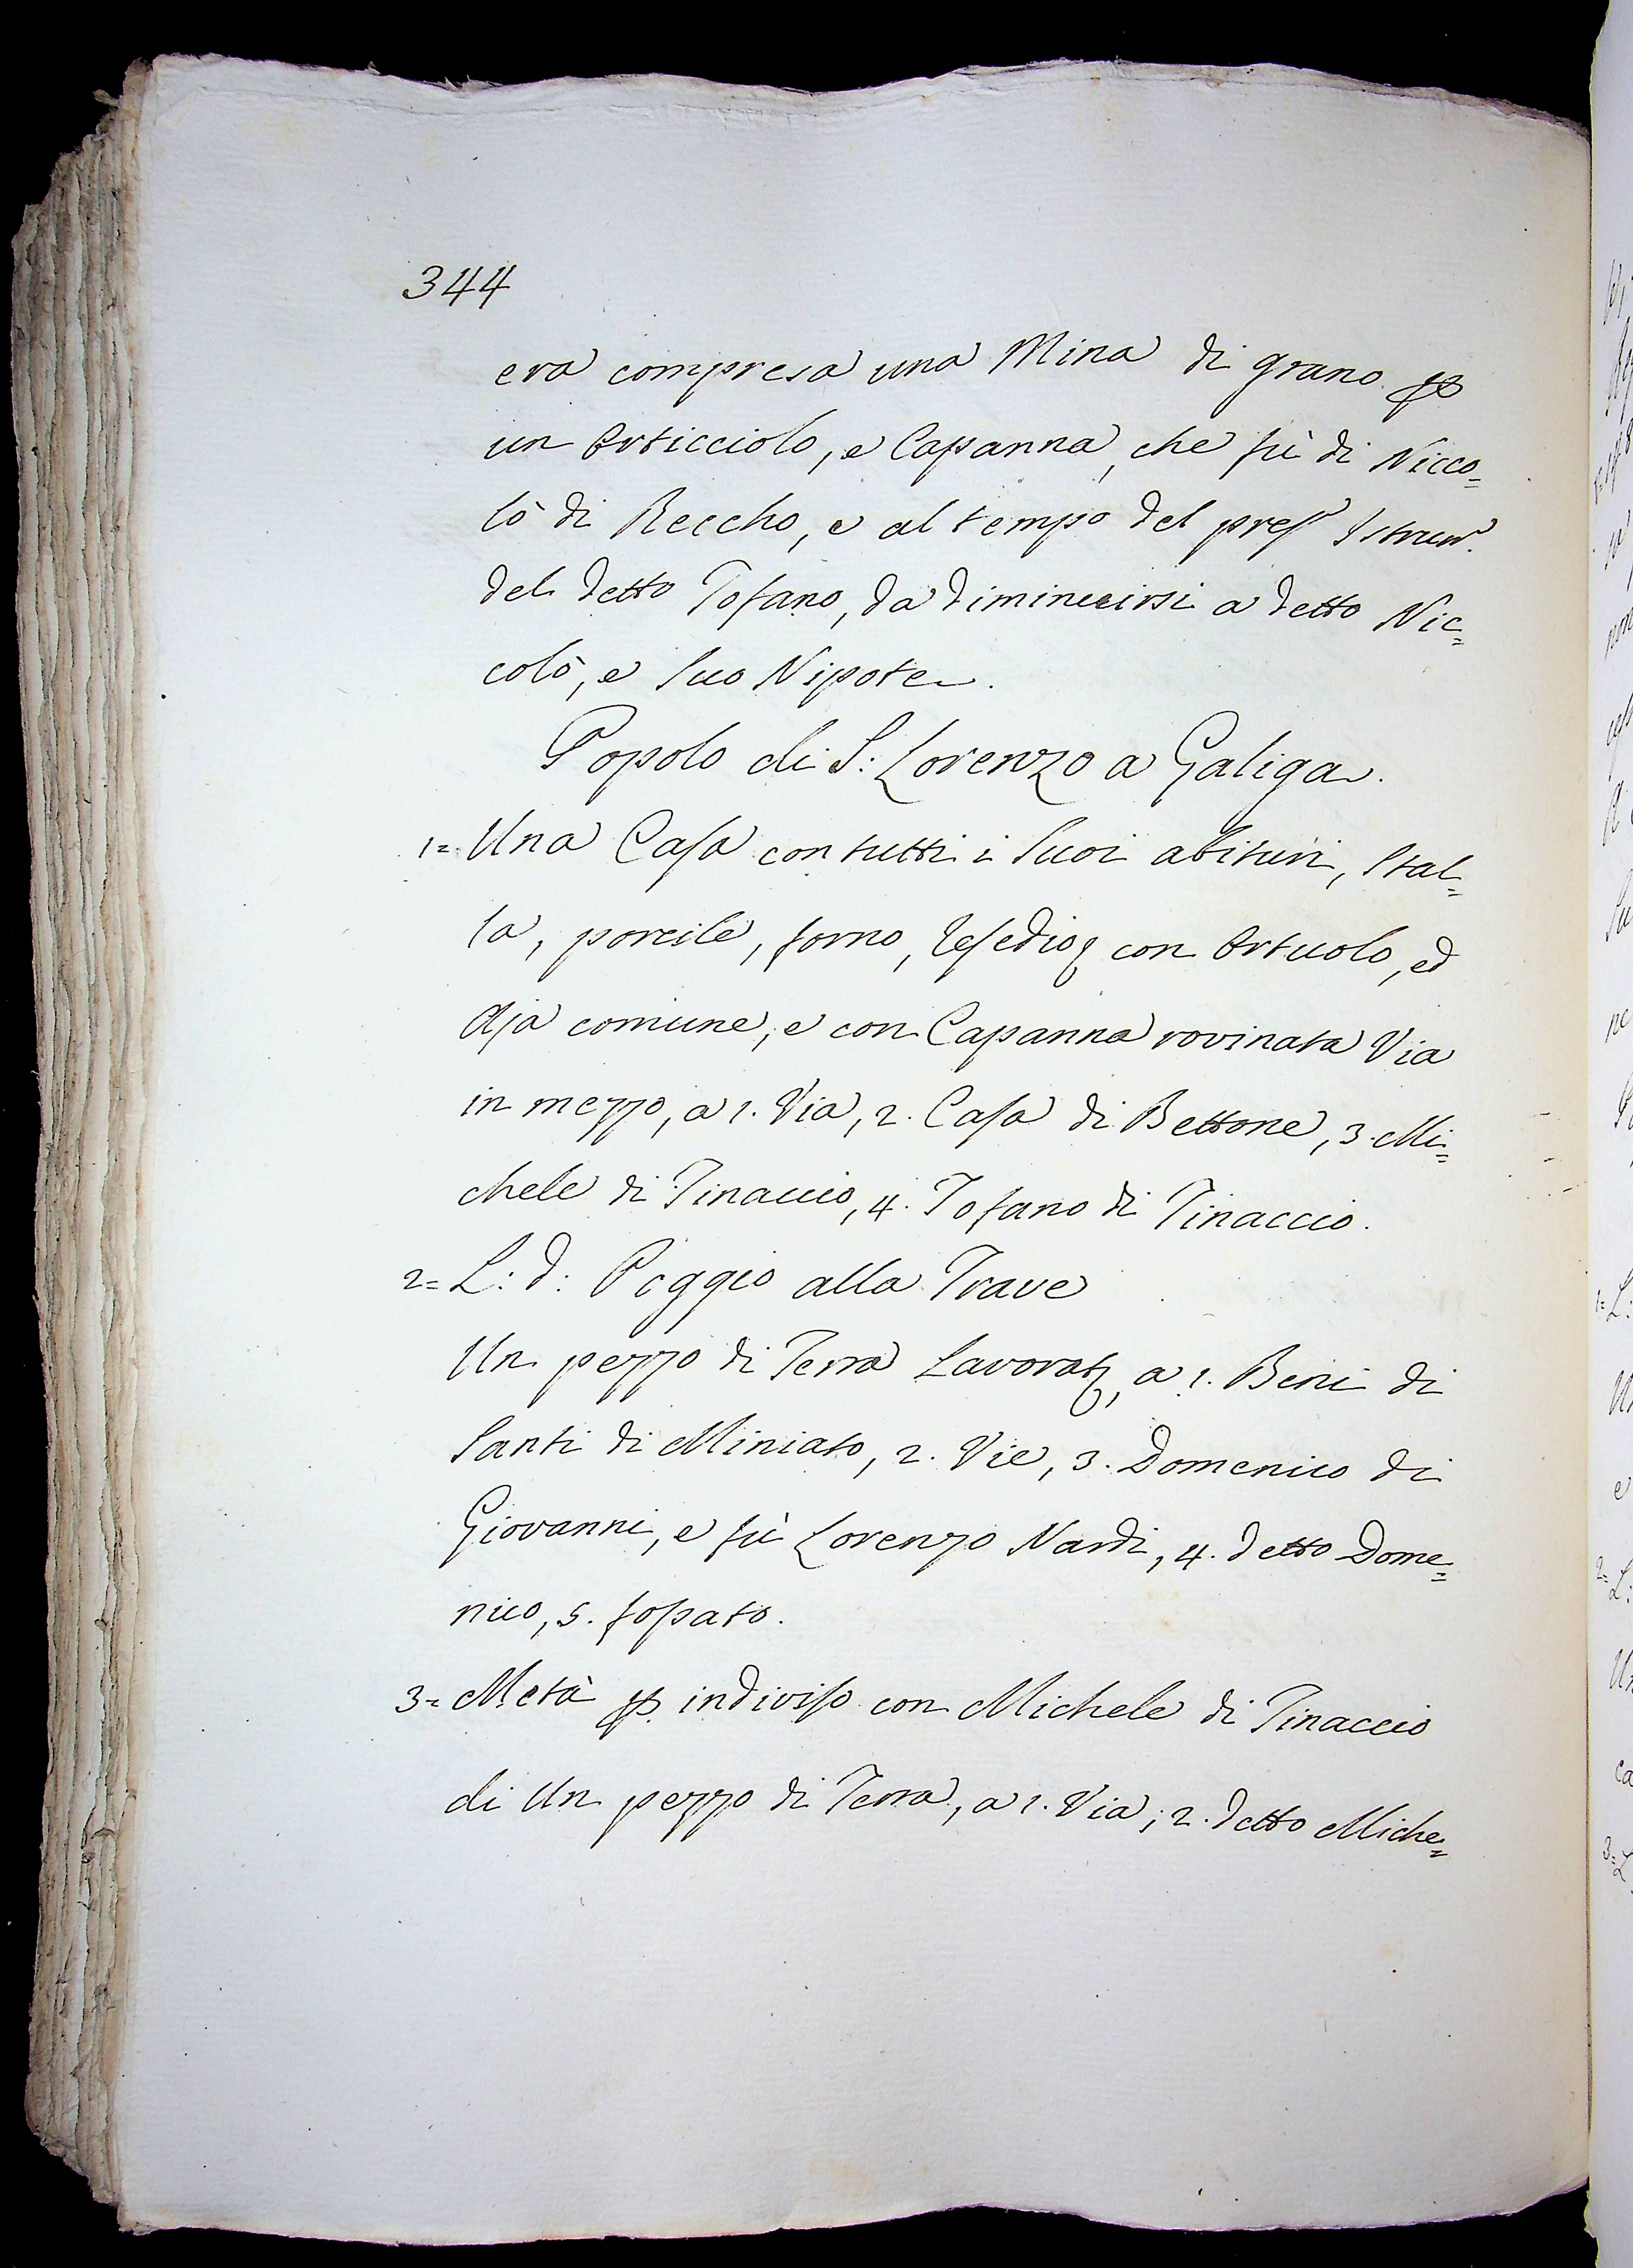 344
era compresa una Mina di grano p
un Orticciolo, e Capanna, che fù di Nicco=
lò di Reccho, e al tempo del pres.e Istrum.
del detto Tofano, da diminuirsi a detto Nic=
colò, e suo Nipote.
Popolo di S: Lorenzo a Galiga.
1= Una Casa con tutti i suoi abituri, stal=
la, porcile, forno, con Ortuolo, ed
Aja comune, e con Capanna rovinata Via
in mezzo, a 1. Via, 2. Casa di Bettone, 3. Mi=
chele di Tinaccio, 4. Tofano di Tinaccio.
2= L: d: Poggio alla Trave
Un pezzo di Terra Lavorat, a 1. Beni di
Santi di Miniato, 2. Vie, 3. Domenico di
Giovanni, e fù Lorenzo Nardi, 4. detto Dome=
nico, 5. fossato.
3= Metà p indiviso con Michele di Tinaccio
di Un pezzo di Terra, a 1. Via, 2. detto Miche=